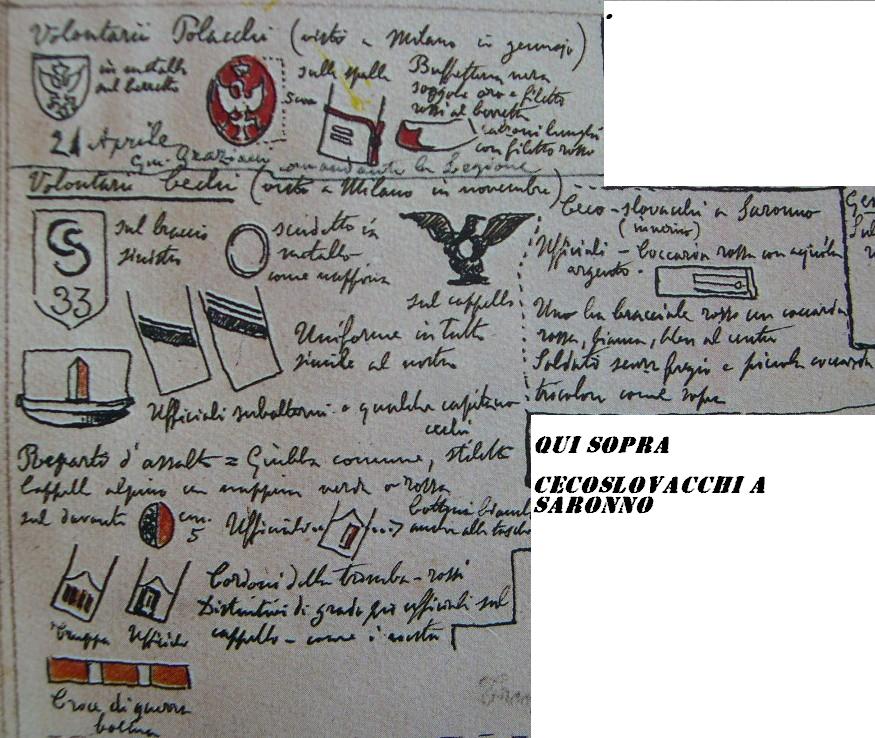 Volontarii Polacchi (visto a Milano in gennajo)
in metallo
sul berretto
sulle spalle
Buffetteria nera
soggolo oro e filetto
rossi al berretto
5 cm
calzoni lunghi
con filetto rosso
21 Aprile
Gen. Graziani comandante la Legione
Volontarii Cechi (visto a Milano in novembre)
CS
33
sul braccio
sinistro
scudetto in
metallo
come nappina
sul cappello
Ceco-slovacchi a Saronno
Ufficiali - Coccarda rossa con aquila
argento.
Uno ha bracciale rosso con coccarda
rossa, bianca, bleu al centro
Soldati senza fregio e piccola coccarda
tricolore come sopra
Uniforme in tutto
simile al nostro
Ufficiali subalterni e qualche capitano
cechi
Reparti d'assalto = Giubba comune, stiletto
Cappello alpino con nappina verde o rossa
sul davanti
cm.
5
Ufficiali
anche alle tasche
Cordoni della tromba - rossi
Distintivi di grado per ufficiali sul
cappello - come i nostri
truppa
Ufficiali
Croce di guerra
boema
QUI SOPRA
CECOSLOVACCHI A
SARONNO